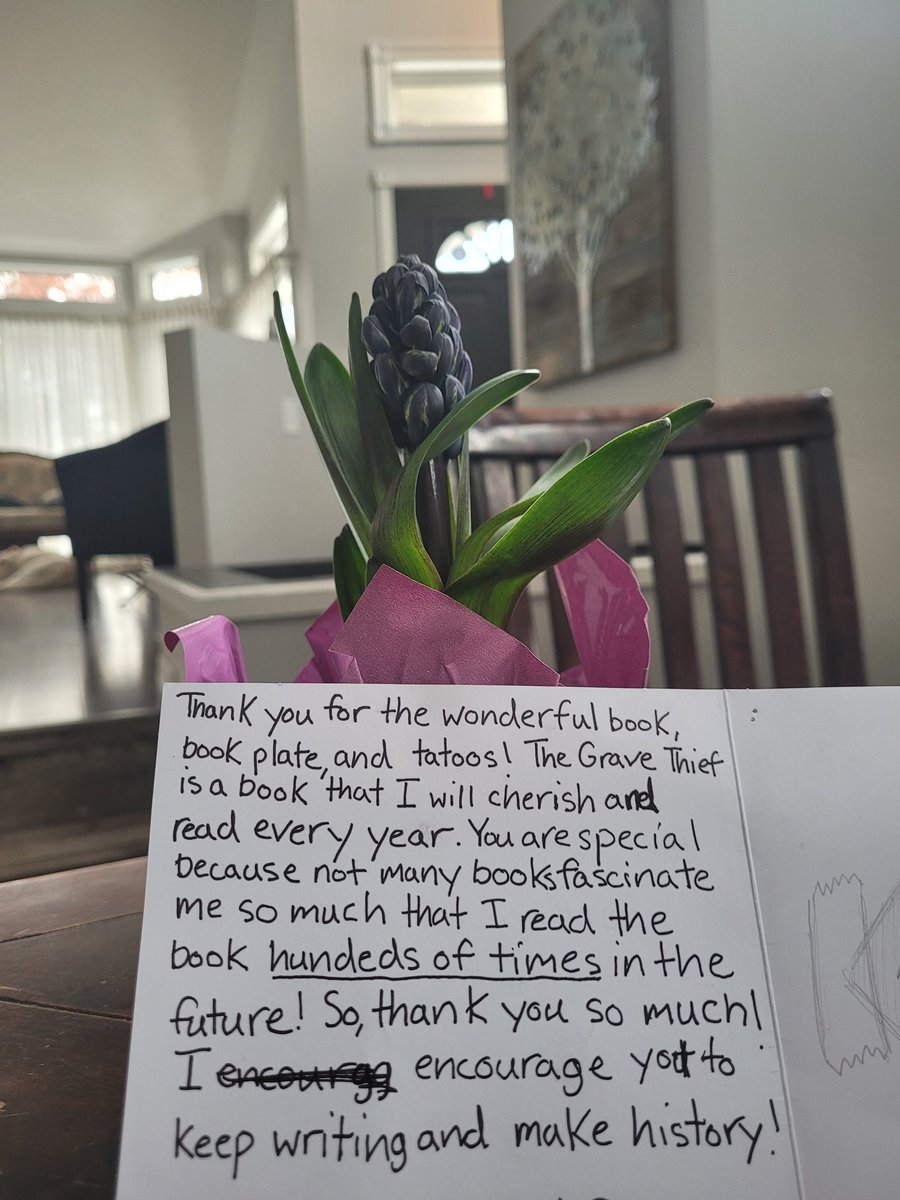 Thank you for the wonderful book,
book plate, and tatoos! The Grave Thief
is a book that I will cherish and
read every year. You are special
because not many books fascinate
me so much that I read the
book hundeds of times in the
future! So, thank you so much!
I encourage you to
keep writing and make history!